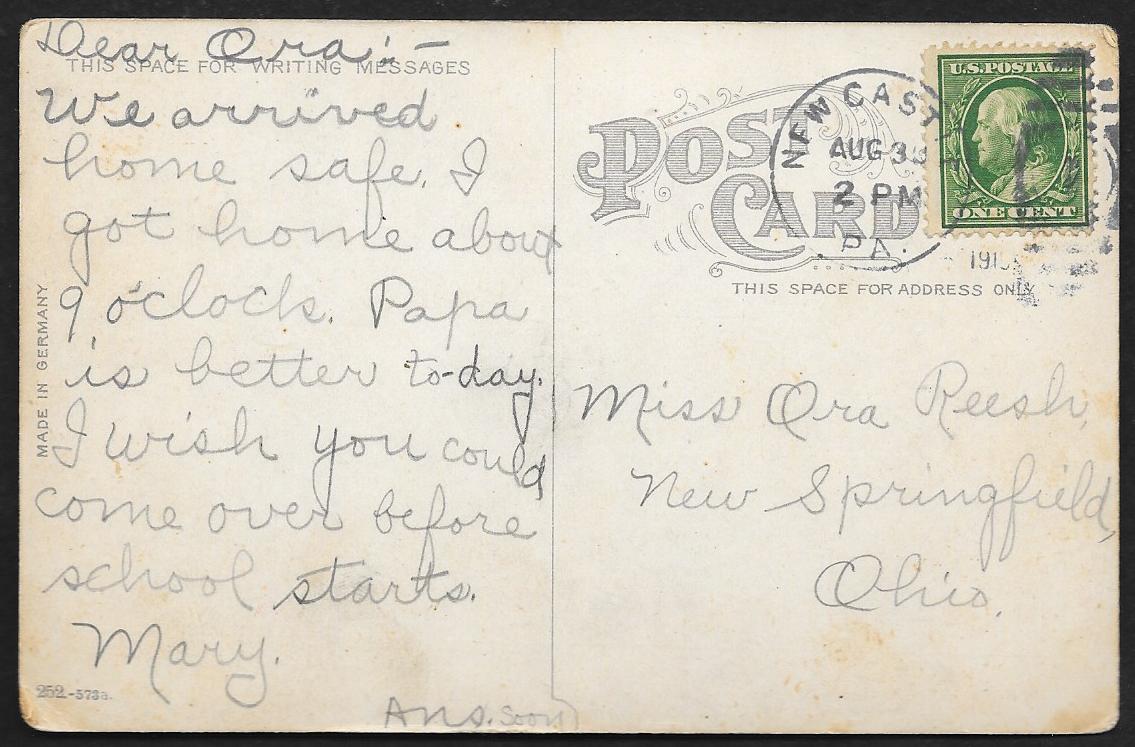 Dear Ora:—
THIS SPACE FOR WRITING MESSAGES
We arrived
home safe. I
got home about
9 o'clock. Papa
is better to-day.
I wish you could
come over before
school starts.
Mary.
Ans. soon
252-573a.
MADE IN GERMANY
POST
CARD
NEW CAST
AUG 30
2 PM
PA.
U.S. POSTAGE
ONE CENT
THIS SPACE FOR ADDRESS ONLY
Miss Ora Reesh,
New Springfield,
Ohio.